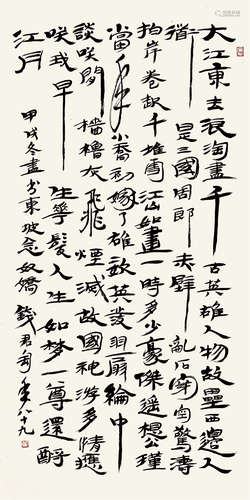 大江東去浪淘盡千古英雄人物故壘西邊人
道是三國周郎赤壁亂石穿空驚濤
拍岸卷起千堆雪江山如畫一時多少豪傑遥想公瑾
當年小喬初嫁了雄姿英發羽扇綸巾
談咲間檣櫓灰飛煙滅故國神游多情應
咲我早生華髮人生如夢一尊還酹
江月 甲戌冬盡書東坡念奴嬌 錢君匋年八十九